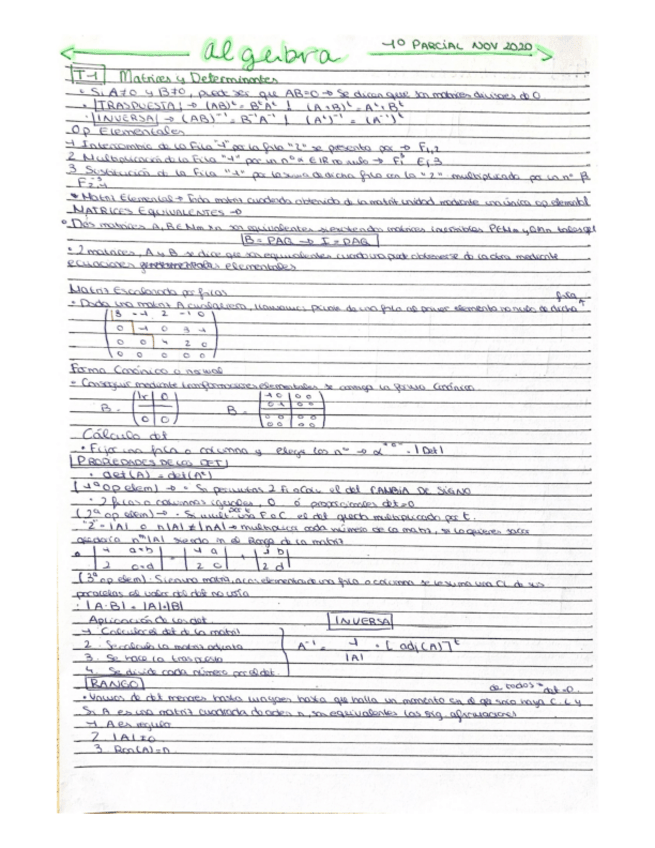 algebra 1º PARCIAL NOV 2020
T-1 Matrices y Determinantes
• Si A≠0 y B≠0, puede ser que AB=0 → Se dicen que son matrices divisores de 0
• TRASPUESTA → (AB)ᵗ = BᵗAᵗ | (A+B)ᵗ = Aᵗ+Bᵗ
• INVERSA → (AB)⁻¹ = B⁻¹A⁻¹ | (Aᵗ)⁻¹ = (A⁻¹)ᵗ
Op Elementales
1 Intercambio de la Fila "1" por la fila "2" se presenta por → F₁,₂
2 Multiplicación de la Fila "1" por un nº α ∈ IR no nulo →
3 Sustitución de la Fila "1" por la suma de dicha fila con la "2" multiplicada por un nº β
* Matriz Elemental → Toda matriz cuadrada obtenida de la matriz unidad mediante una única op elemental
MATRICES EQUIVALENTES →
• Dos matrices A, B ∈ Mm×n son equivalentes si existen dos matrices inversibles P∈Mm y Q∈Mn tales que
B = PAQ → I = PAQ
• 2 matrices, A y B se dice que son equivalentes cuando una puede obtenerse de la otra mediante
ecuaciones elementales
Matriz Escalonada por filas
• Dada una matriz A cualquiera, llamamos pivote de una fila al primer elemento no nulo de dicha fila
3 -1 2 -1 0
0 -1 0 3 -1
0 0 4 2 0
0 0 0 0 0
Forma Canónica o normal
- Conseguir mediante transformaciones elementales se consiga la forma Canónica.
B = Ir 0 B = 1 0 0 0
0 1 0 0
0 0 0 0 0 0
0 0 0 0
Cálculo det
• Fijo una fila o columna y elegir los nº → · |Det|
PROPIEDADES DE LOS DET
• det(A) = det(Aᵗ)
(1ª op elem) → • Si permutas 2 F o C en el det CAMBIA DE SIGNO
• 2 filas o columnas iguales, 0 ó proporcionales det=0
(2ª op elem) → • Si mult. por t una F o C el det queda multiplicado por t.
2·|A| o n|A| ≠ |nA| → multiplica cada número de la matriz, si lo quieres sacar
quedaría nᵐ|A| siendo m el Rango de la matriz
• 4 a+b = 4 a + 4 b
2 c+d 2 c 2 d
(3ª op elem) • Si en una matriz, a los elementos de una fila o columna se le suma una CL de sus
paralelas el valor del det no varía
• |A·B| = |A|·|B|
Aplicación de los det. INVERSA
1 Calcular el det de la matriz
2. Se calcula la matriz adjunta A⁻¹ = 1/|A| · [adj(A)]ᵗ
3. Se hace la traspuesta
4. Se divide cada número por el det.
RANGO de todos → det=0
• Vamos de det menores hasta mayores hasta que halla un momento en el que solo haya C.L y
Si A es una matriz cuadrada de orden n, son equivalentes las sig. afirmaciones
1 A es regular
2. |A| ≠ 0
3. Ran(A)=n